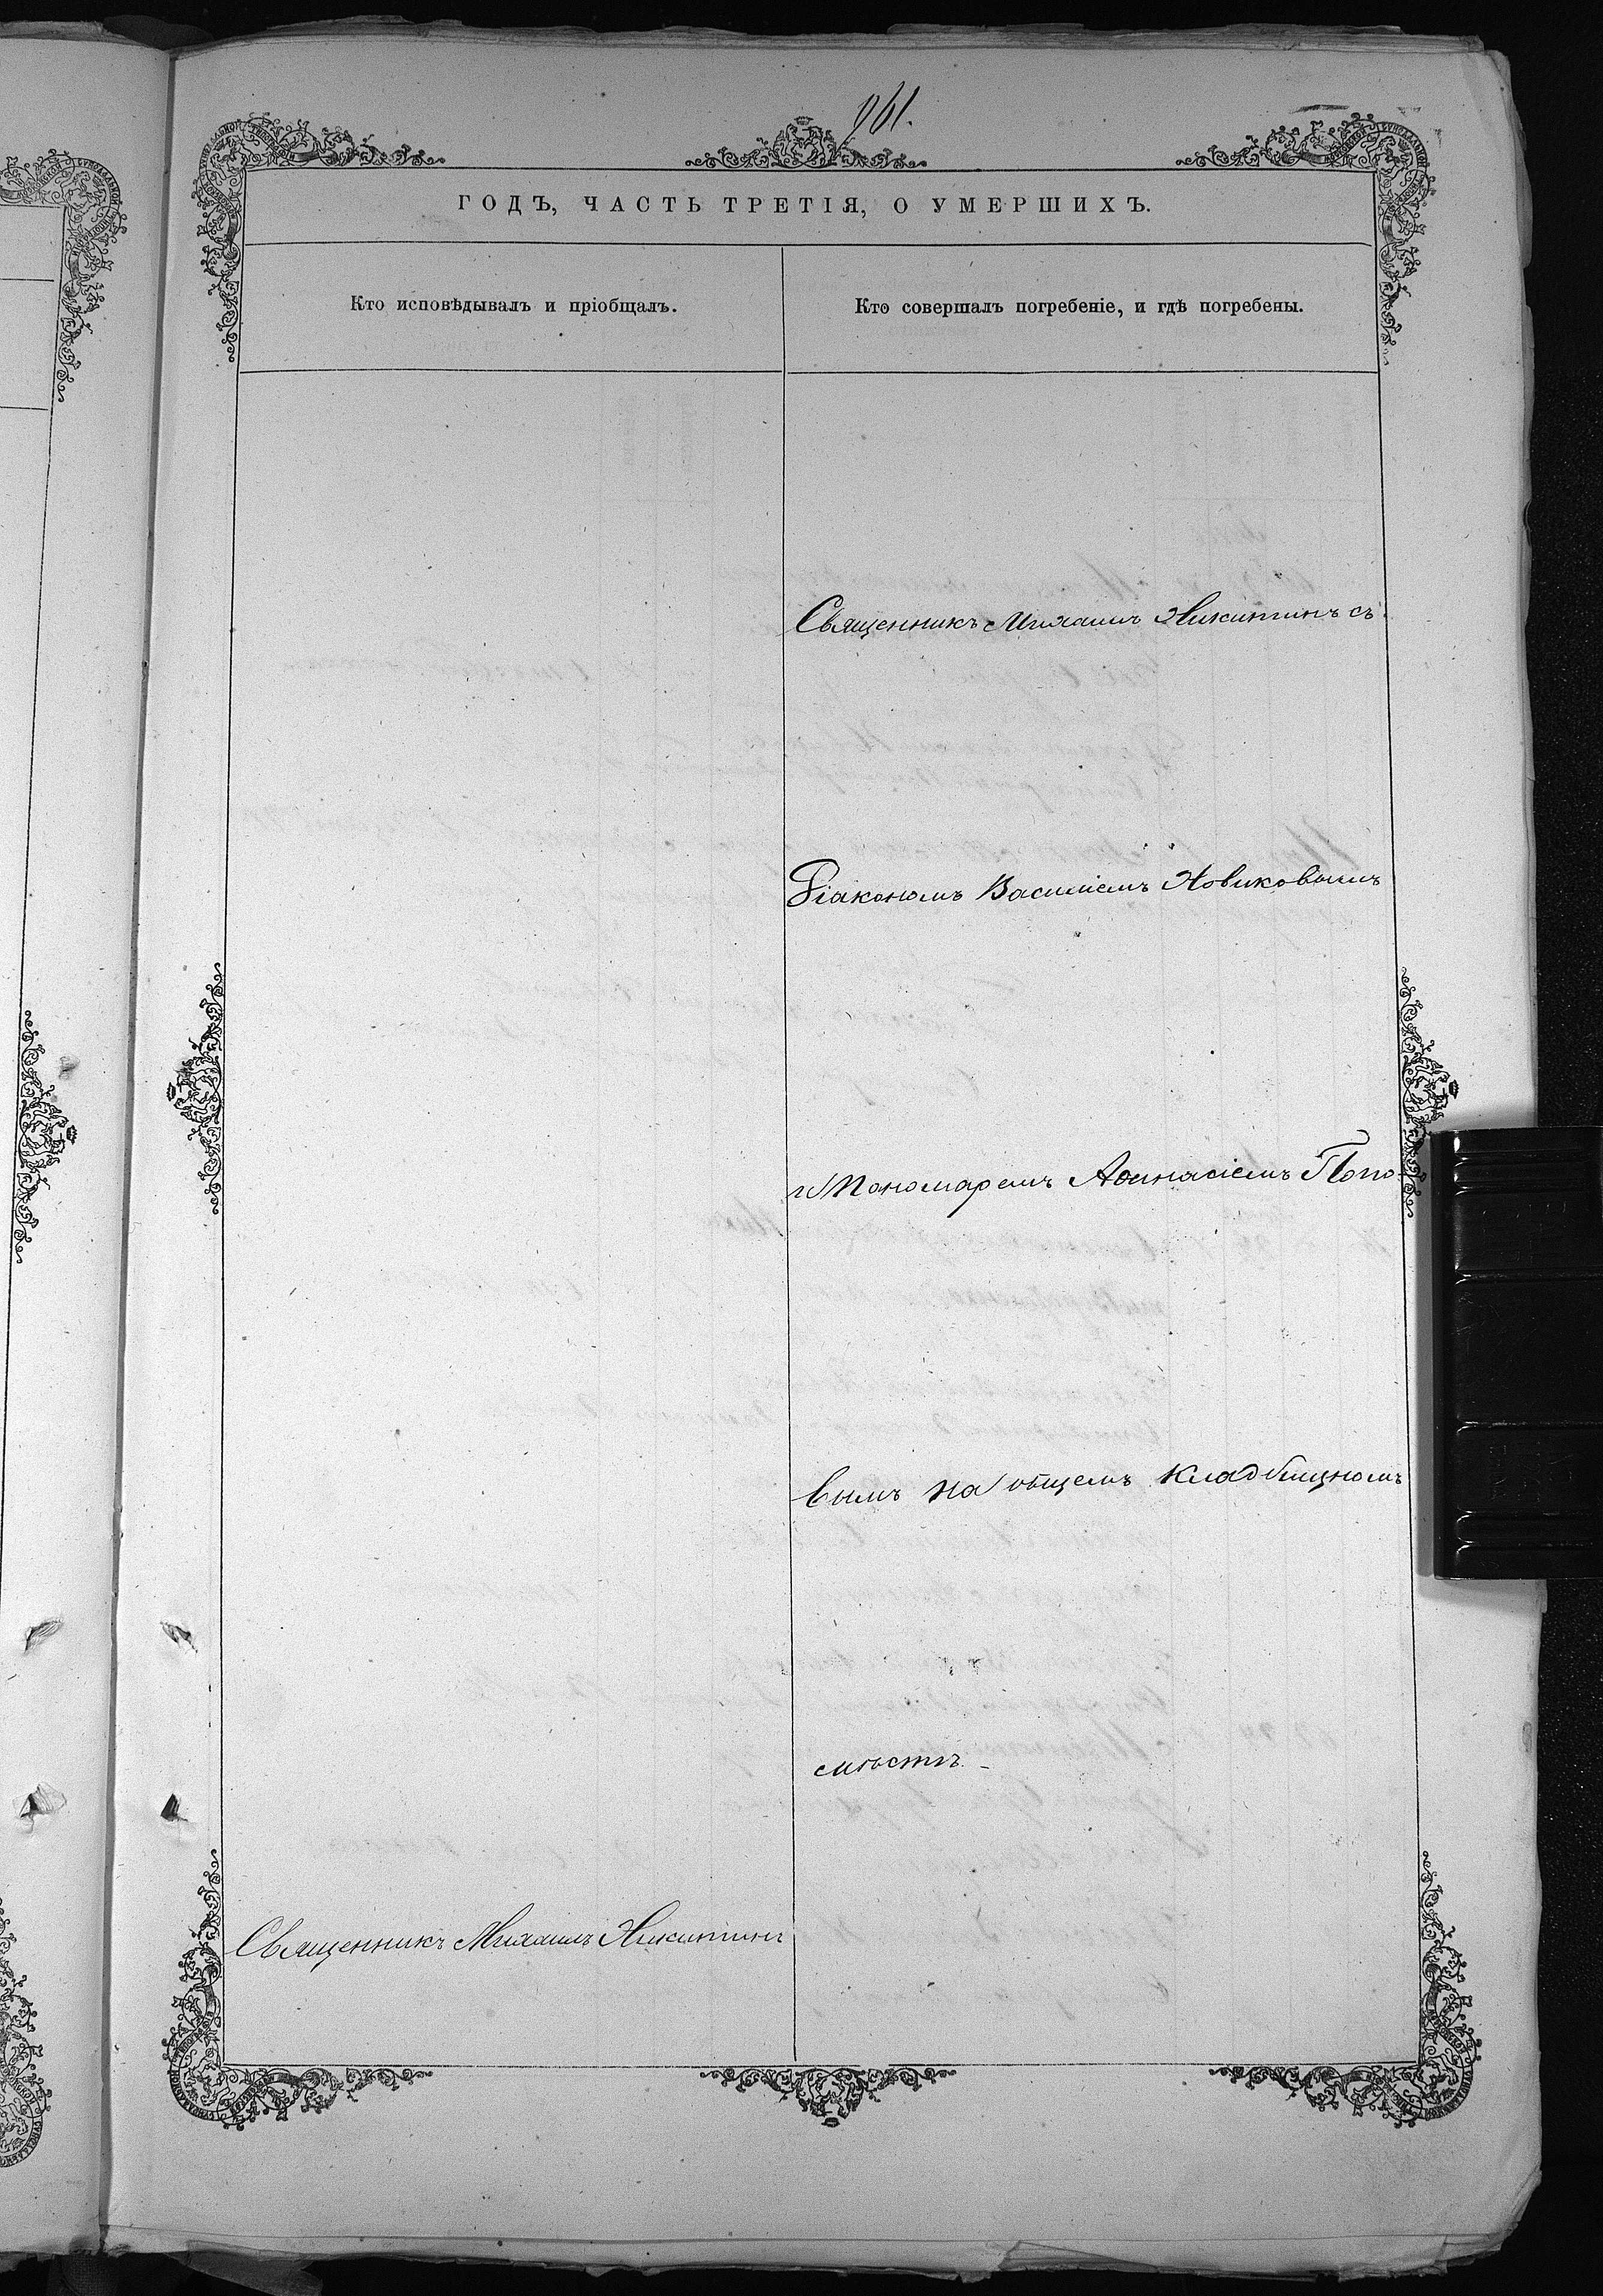 961.
ГОДЪ, ЧАСТЬ ТРЕТІЯ, О УМЕРШИХЪ.
Кто исповѣдывалъ и пріобщалъ.
Кто совершалъ погребеніе, и гдѣ погребены.
Священникъ Михаилъ Никитинъ съ
Діакономъ Василіемъ Новиковымъ
и Пономаремъ Аѳанасіемъ Попо-
вымъ на общемъ кладбищномъ
мѣстѣ.
Священникъ Михаилъ Никитинъ